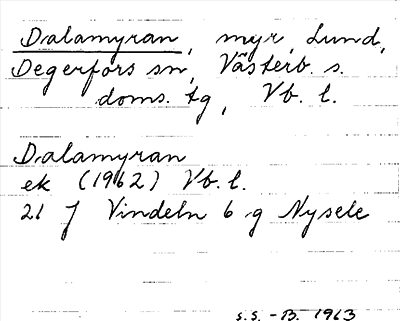 Dalamyran, myr, Lund,
Degerfors sn, Västerb. s.
doms. tg, Vb. l.
Dalamyran
ek (1962) Vb. l.
21 J Vindeln 6 g Nysele
S.S. - B. 1963